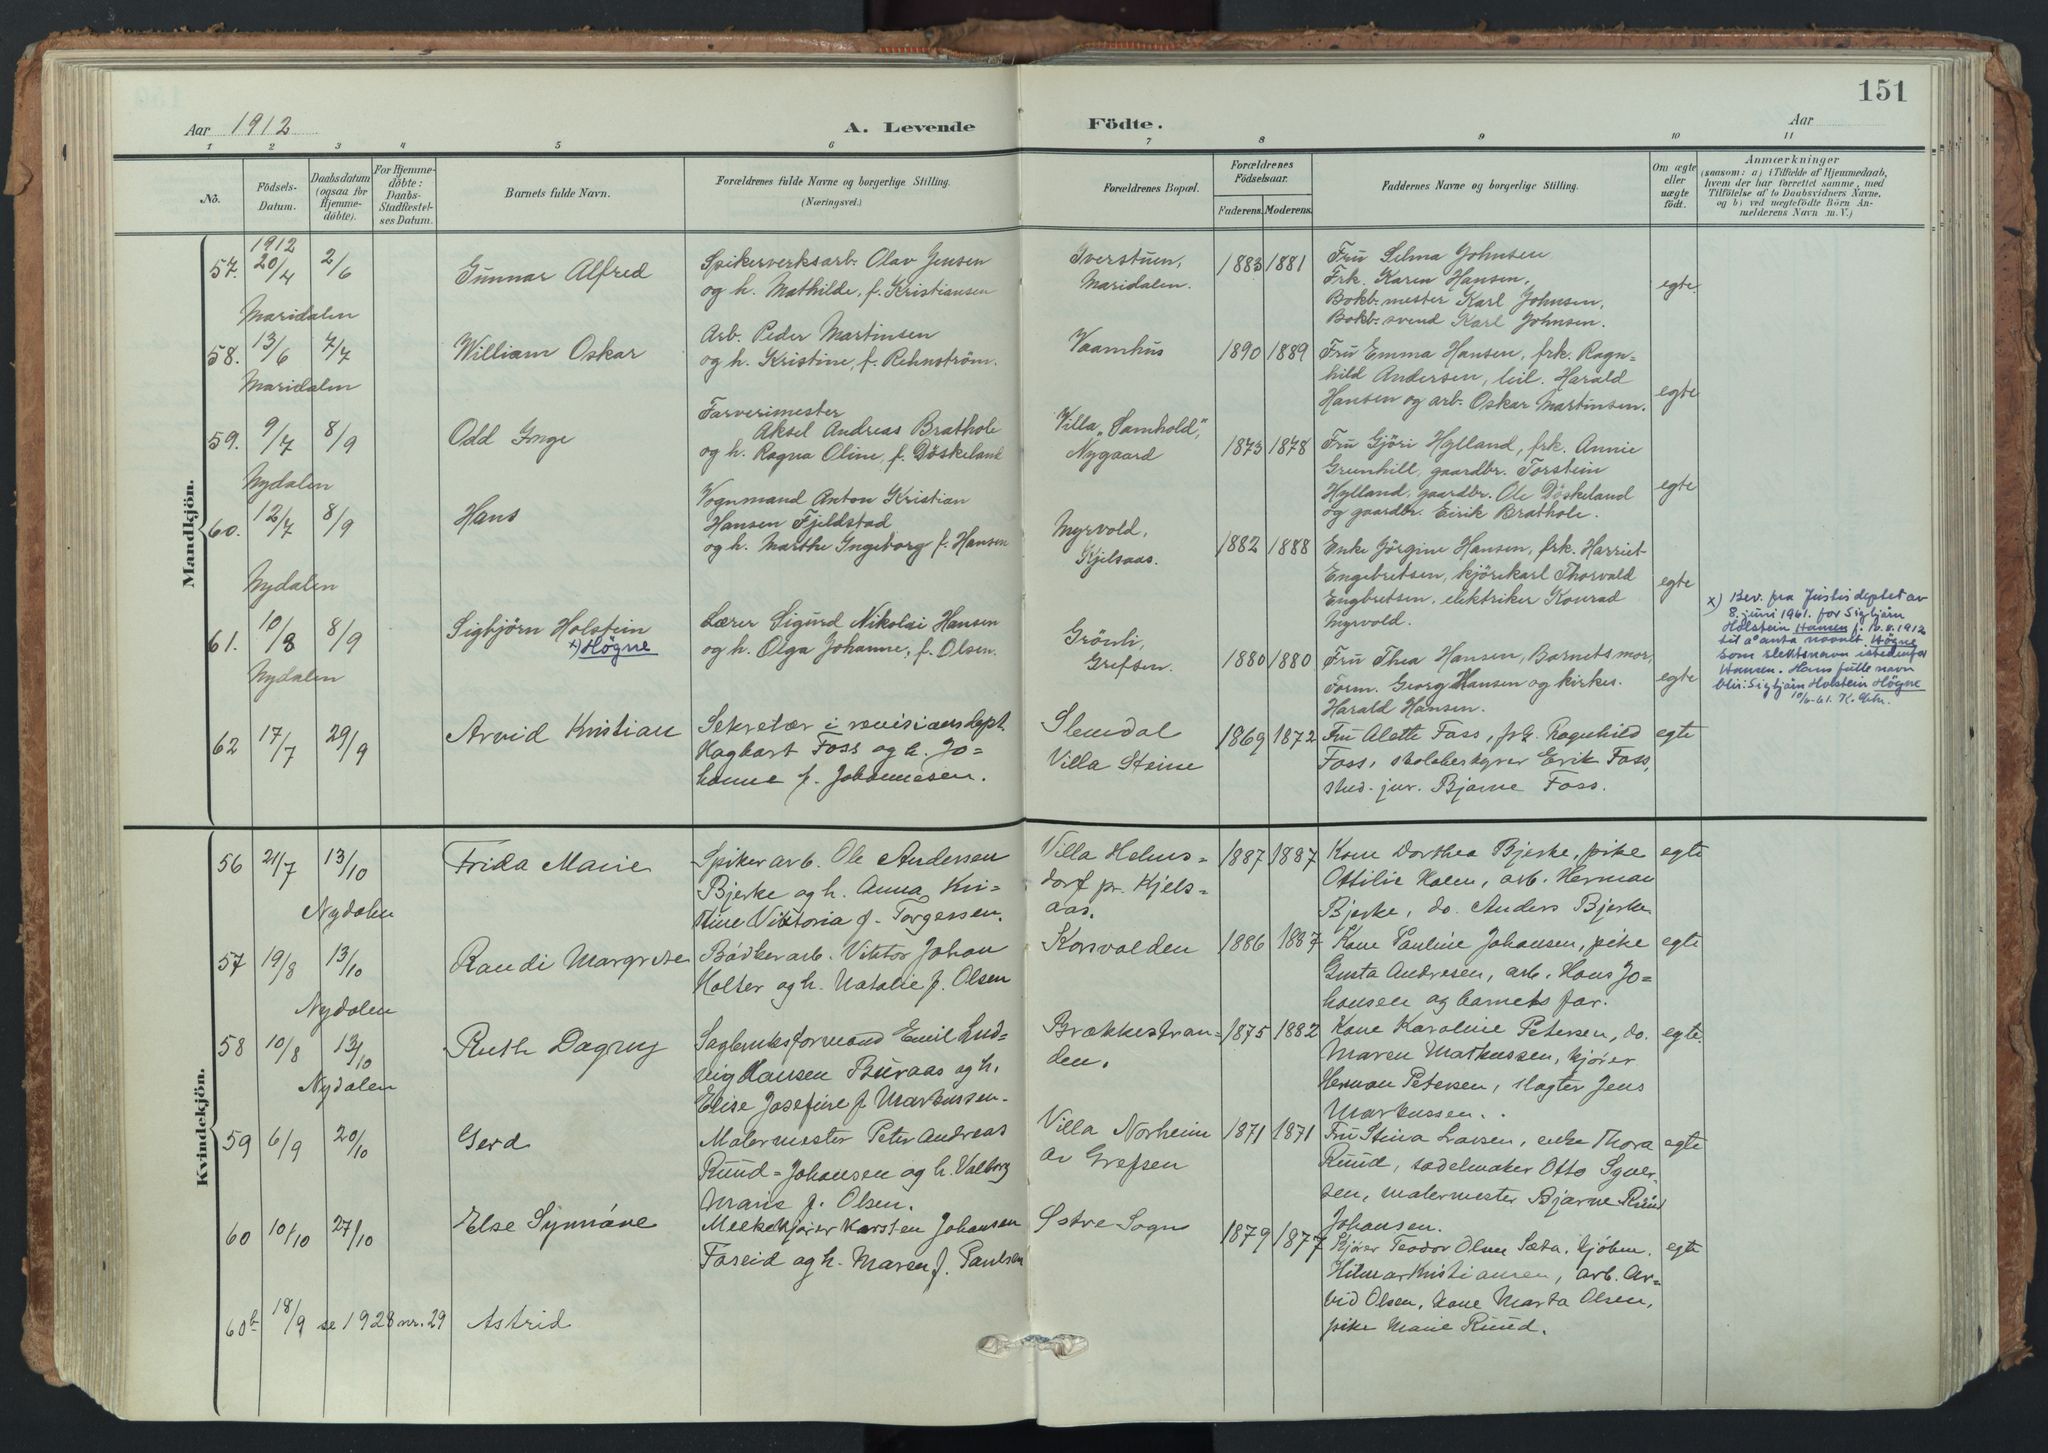 151
Aar 1912
A. Levende
Födte.
Aar
1 2 3 4 5 6 7 8 9 10 11
No.
Födsels-Datum.
Daabsdatum (ogsaa for Hjemme-döbte).
For Hjemme-döbte: Daabs-Stadfæstel-ses Datum.
Barnets fulde Navn.
Forældrenes fulde Navne og borgerlige Stilling.
(Næringsvei.)
Forældrenes Bopæl.
Forældrenes Födselsaar.
Faderens. Moderens.
Faddernes Navne og borgerlige Stilling.
Om ægte eller uægte födt.
Anmærkninger
(saasom: a) i Tilfælde af Hjemmedaab,
hvem der har forrettet samme, med
Tilföielse af to Daabsvidners Navne,
og b) ved uægtefödte Börn An-
melderens Navn m. V.)
Mandkjön.
1912
57. 20/4 2/6 Gunnar Alfred
Maridalen
Spikerverksarb. Olav Jensen
og h. Mathilde, f. Kristiansen
Iverstuen,
Maridalen.
1883 1881
Fru Selma Johnsen
Frk. Karen Hansen,
Bokb.mester Karl Johnsen,
Bokb.svend Karl Johnsen.
egte.
58. 13/6 7/7 William Oskar
Maridalen
Arb. Peder Martinsen
og h. Kristine, f. Rehnström.
Vaamhus
1890 1889
Fru Emma Hansen, frk. Ragn-
hild Andersen, Harald
Hansen og arb. Oskar Martinsen.
egte
59. 9/7 8/9 Odd Inge
Nydalen
Farverimester
Aksel Andreas Brathole
og h. Ragna Oline, f. Döskeland
Villa "Samhold",
Nygaard
1873 1878
Fru Gjöri Hylland, frk. Annie
Grunhill, gaardbr. Torstein
Hylland, gaardbr. Ole Döskeland
og gaardbr. Eirik Brathole.
egte
60. 12/7 8/9 Hans
Nydalen
Vognmand Anton Kristian
Hansen Fjeldstad
og h. Marthe Ingeborg f. Hansen
Myrvold,
Kjelsaas.
1882 1888
Enke Jörgine Hansen, frk. Harriet
Engebretsen, kjörekarl Thorvald
Engbretsen, elektriker Konrad
Myrvold.
egte
61. 10/8 8/9 Sigbjörn Holstein
x) Högne
Nydalen
Lærer Sigurd Nikolai Hansen
og h. Olga Johanne, f. Olsen.
Grönli,
Grefsen.
1880 1880
Fru Thea Hansen, Barnets mor,
Form. Georg Hansen og kirkes.
Harald Hansen.
egte
x) Bev. fra Justisdeptet av
8. juni 1961. for Sigbjörn
Holstein Hansen f. 10.8.1912
til å anta navnet Högne
som slektsnavn istedenfor
Hansen. Hans fulle navn
blir: Sigbjörn Holstein Högne
10/6-61.
62 17/7 29/9 Arvid Kristian
Sekretær i revisionsdept.
Hagbart Foss og h. Jo-
hanne f. Johannesen.
Slemdal
Villa Steine
1869 1872
Fru Alette Foss, frk. Ragnhild
Foss, skolebestyrer Erik Foss,
stud. jur. Bjarne Foss.
egte
Kvindekjön.
56 21/7 13/10 Frida Marie
Nydalen
Spikerarb. Ole Andersen
Bjerke og h. Anna Kri-
stine Viktoria f. Torgersen.
Villa Helms-
dorf pr. Kjels-
aas.
1887 1887
Kone Dorthea Bjerke, pike
Ottilie Holen, arb. Herman
Bjerke, do. Anders Bjerke
egte
57 19/8 13/10 Randi Margrete
Nydalen
Bödkerarb. Viktor Johan
Holter og h. Natalie f. Olsen
Korsvolden
1886 1887
Kone Pauline Johansen, pike
Gusta Andresen, arb. Hans Jo-
hansen og barnets far.
egte
58 10/8 13/10 Ruth Dagny
Nydalen
Sagbruksformand Emil Lud-
vig Hansen Buraas og h.
Elise Josefine f. Markussen.
Brækkestran-
den.
1875 1882
Kone Karoline Petersen, do.
Maren Markussen, kjører
Herman Petersen, slagter Jens
Markussen.
egte.
59 6/9 20/10 Gerd
Malermester Peter Andreas
Ruud-Johansen og h. Valborg
Marie f. Olsen.
Villa Norheim
av Grefsen
1871 1871
Fru Stina Larsen, enke Thora
Ruud, sadelmaker Otto Syver-
sen, malermester Bjarne Ruud
Johansen.
egte
60 10/10 27/10 Else Synnöve
Melkekjører Karsten Johansen
Foseid og h. Maren f. Paulsen
Østre Sogn
1879 1877
Kjører Teodor Olsen Sæta, kjøbm.
Hilmar Kristiansen, arb. Ar-
vid Olsen, kone Marta Olsen,
pike Marie Ruud.
egte
60b 18/9 se 1928 nr. 29 Astrid